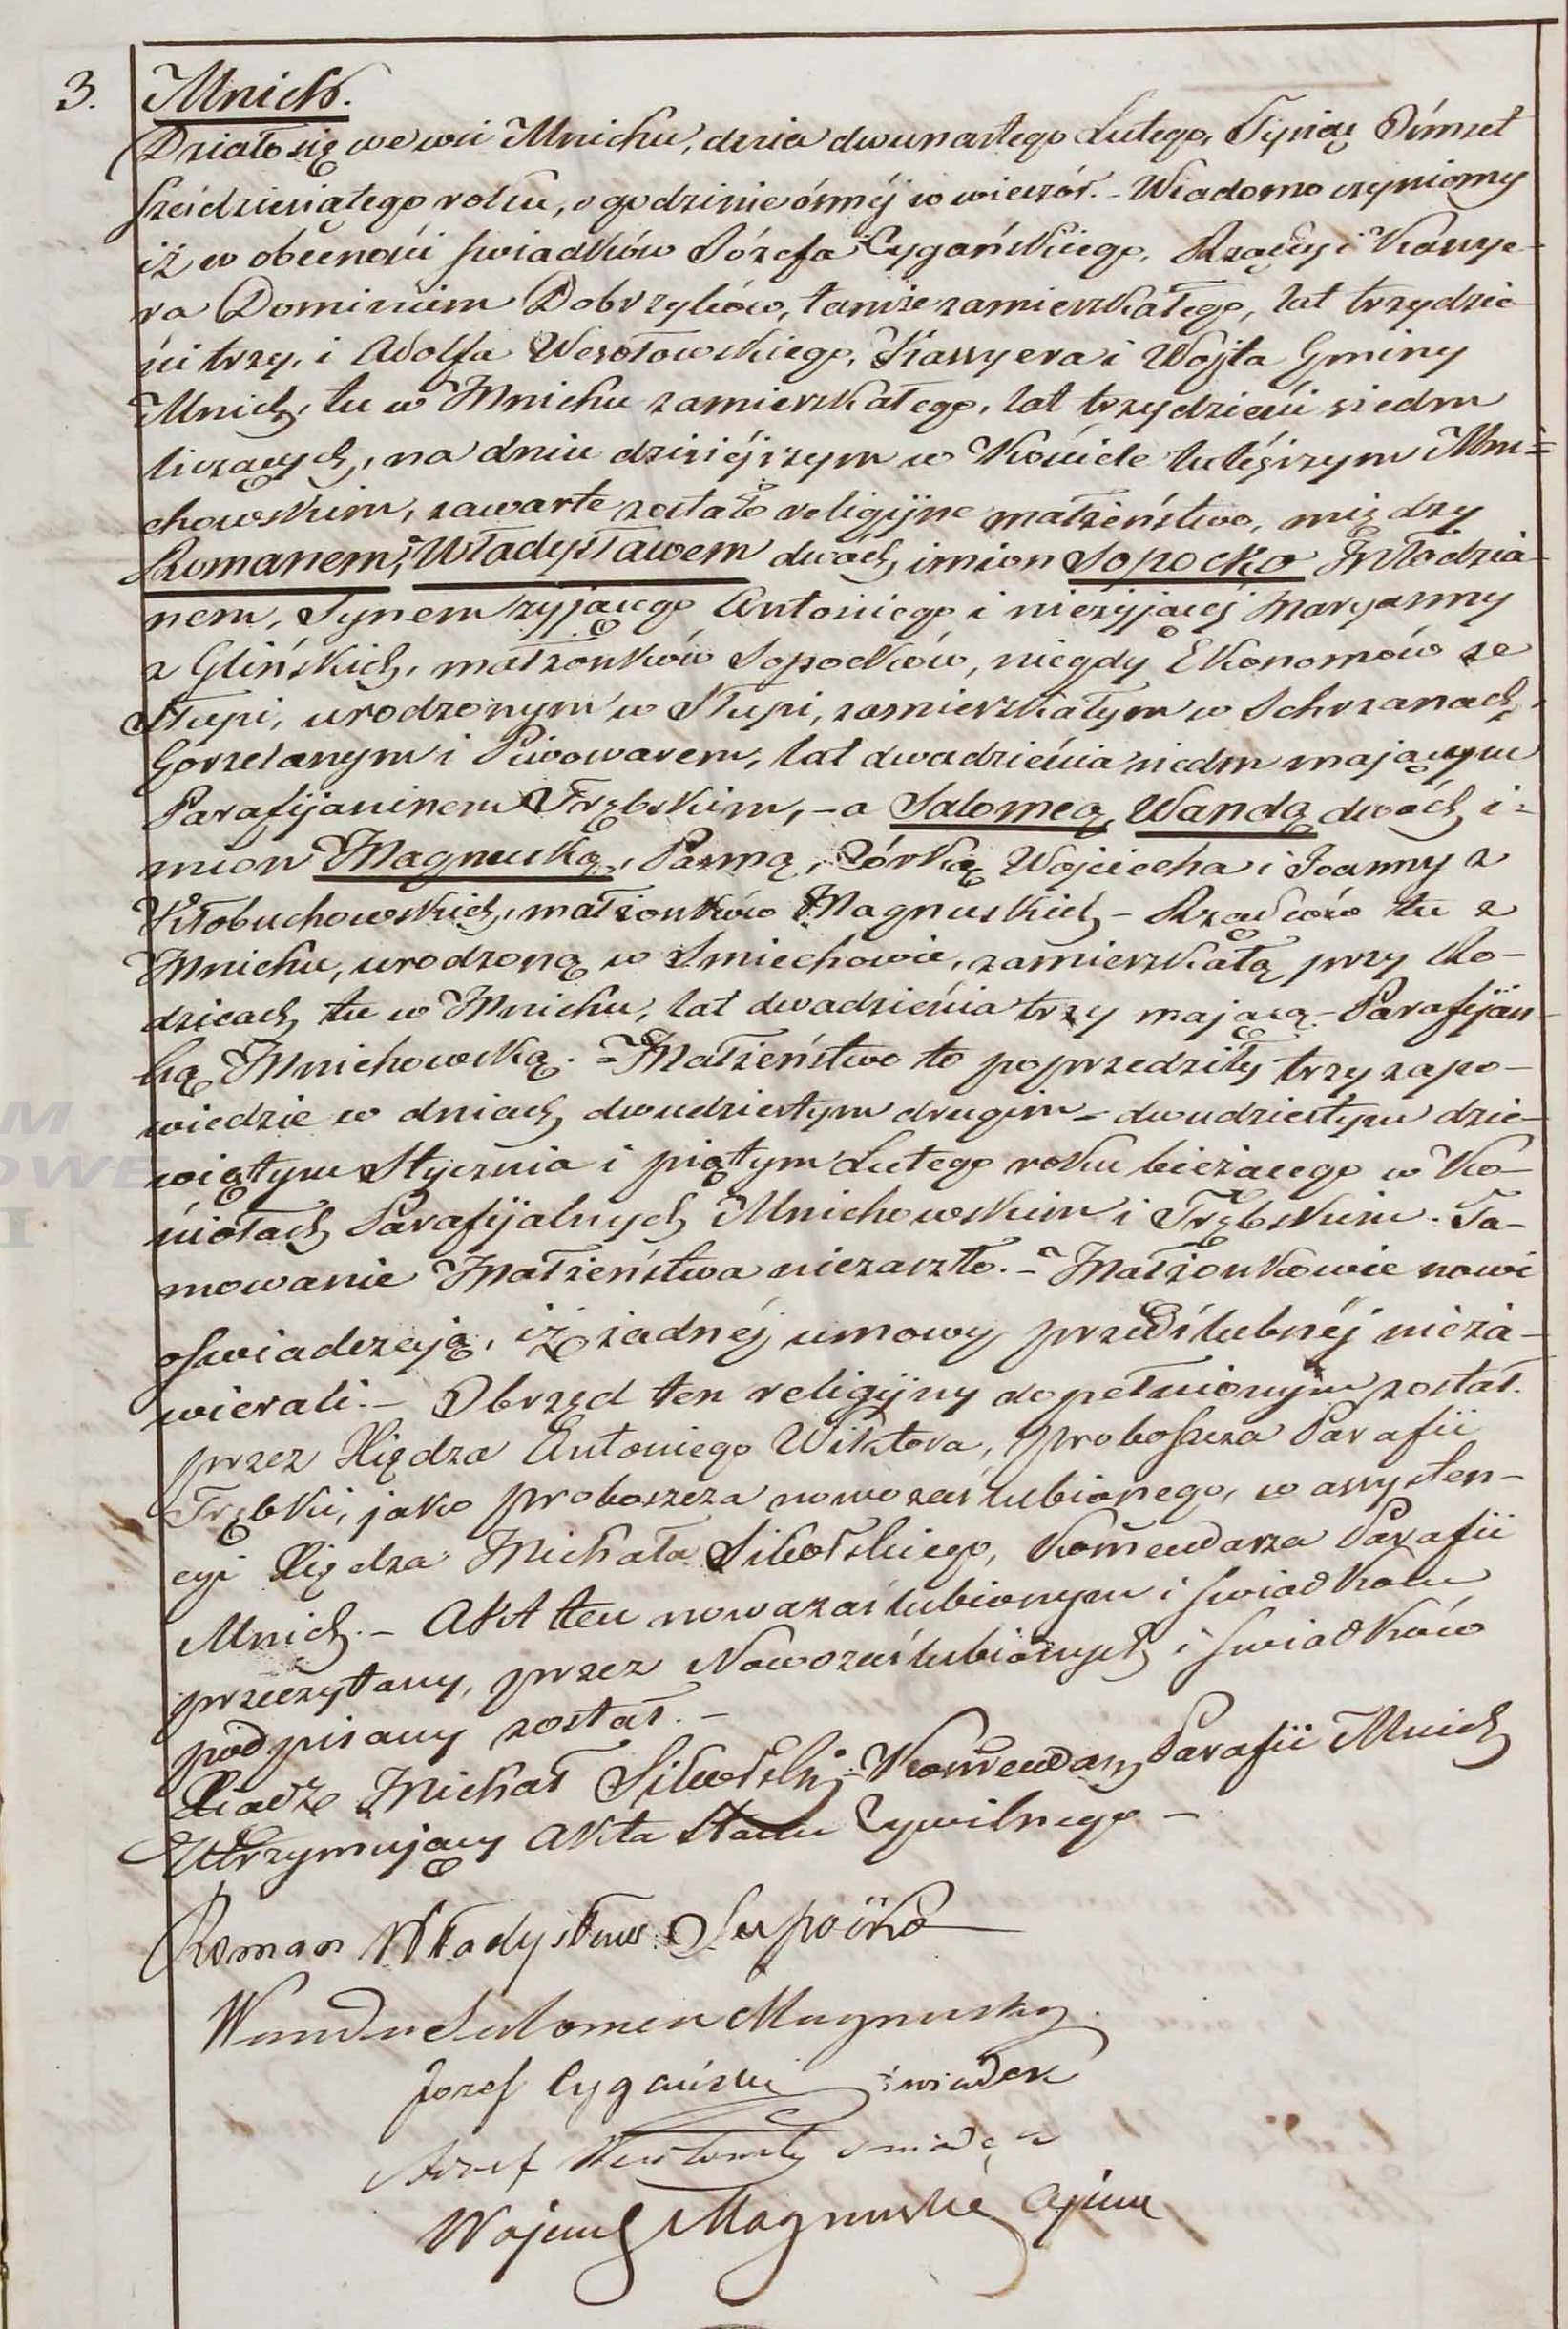 3. Mnich.
Działo się we wsi Mnichu, dnia dwunastego Lutego, Tysiąc Ośmset
sześdziesiątego roku, o godzinie ósméj w wieczór. - Wiadomo czyniemy
iż w obecności świadków Józefa Cygańskiego, Rządcy i Kassye-
ra Dominium Dobrzyków, tamże zamieszkałego, lat trzydzie-
ści trzy, i Adolfa Wesołowskiego, Kassyera i Wójta Gminy
Mnich, tu w Mnichu zamieszkałego, lat trzydzieści siedm
liczących, na dniu dzisiéjszym w Kościele tutéjszym Mni=
chowskim, zawarte zostało religijne małżeństwo, między
Romanem, Władysławem dwóch imion Sopoćko Młodzia-
nem, Synem żyjącego Antoniego i nieżyjącéj Maryanny
z Glińskich, małżonków Sopoćków, niegdy Ekonomów ze
Słupi, urodzonym w Słupi, zamieszkałym w Schrzanach,
Gorzelanym i Piwowarem, lat dwadzieścia siedm mającym
Parafijaninem Trębskim, - a Salomeą, Wandą dwóch i=
mion Magnuską, Panną, Córką Wojciecha i Joanny z
Kłobuchowskich, małżonków Magnuskich - Rządców tu z
Mnichu, urodzoną w Smiechowie, zamieszkałą przy Ro-
dzicach tu w Mnichu, lat dwadzieścia trzy mającą - Parafijan-
ką Mnichowską. - Małżeństwo to poprzedziły trzy zapo-
wiedzie w dniach dwudziestym drugim - dwudziestym dzie-
wiątym Stycznia i piątym Lutego roku bieżącego w Ko-
ściołach Parafijalnych Mnichowskim i Trębskim. Ta-
mowanie Małżeństwa niezaszło. - Małżonkowie nowi
oświadczają, iż żadnéj umowy przedślubnéj nieza-
wierali. - Obrzęd ten religijny dopełnionym został
przez Xiędza Antoniego Wiktora, proboszcza Parafii
Trębki, jako proboszcza nowozaślubionego, w assysten-
cyi Xiędza Michała Sikorskiego, Komendarza Parafii
Mnich. - Akt ten nowozaślubionym i świadkom
przeczytany, przez Nowozaślubionych i świadków
podpisany został. -
Xiądz Michał Sikorski Komendarz Parafii Mnich
Utrzymujący Akta Stanu Cywilnego -
Roman Władysław Sopoćko
Wanda Salomea Magnuska.
Jozef Cygański świadek
Wojciech Magnuski Ojciec